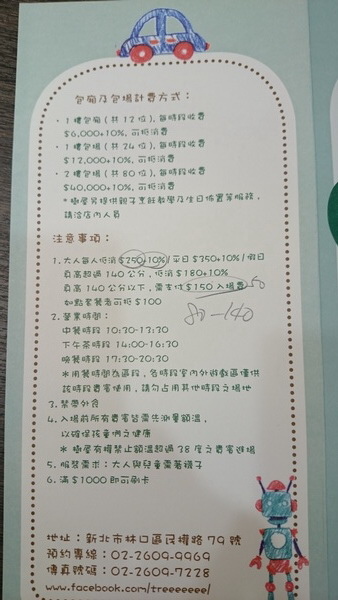 包廂及包場計費方式：
・1樓包廂(共12位),每時段收費
$6,000+10%,可抵消費
・1樓包場(共24位),每時段收費
$12,000+10%,可抵消費
・2樓包場(共80位),每時段收費
$40,000+10%,可抵消費
*樹屋另提供親子烹飪教學及生日佈置等服務，
請洽店內人員
注意事項：
1.大人每人低消$250+10%/平日 $350+10%/假日
身高超過140公分,低消$180+10%
身高140公分以下,需支付$150入場費 50
如點套餐者可抵$100
80-140
2.營業時間：
中餐時段 10:30-13:30
下午茶時段 14:00-16:30
晚餐時段 17:30-20:30
*用餐時間為區段,各時段室內外遊戲區僅供
該時段貴賓使用,請勿占用其他時段之場地
3.禁帶外食
4.入場前所有貴賓皆需先測量額溫,
以確保孩童們之健康
*樹屋有權禁止額溫超過38度之貴賓進場
5.服裝需求：大人與兒童需著襪子
6.滿$1000即可刷卡
地址：新北市林口區民權路79號
預約專線：02-2609-9969
傳真號碼：02-2609-7228
www.facebook.com/treeeeeee/